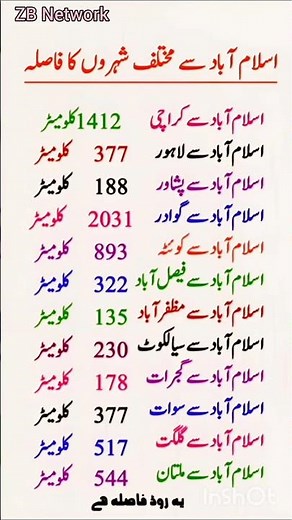 ZB Network
اسلام آباد سے مختلف شہروں کا فاصلہ
اسلام آباد سے کراچی 1412 کلومیٹر
اسلام آباد سے لاہور 377 کلومیٹر
اسلام آباد سے پشاور 188 کلومیٹر
اسلام آباد سے گوادر 2031 کلومیٹر
اسلام آباد سے کوئٹہ 893 کلومیٹر
اسلام آباد سے فیصل آباد 322 کلومیٹر
اسلام آباد سے مظفر آباد 135 کلومیٹر
اسلام آباد سے سیالکوٹ 230 کلومیٹر
اسلام آباد سے گجرات 178 کلومیٹر
اسلام آباد سے سوات 377 کلومیٹر
اسلام آباد سے گلگت 517 کلومیٹر
اسلام آباد سے ملتان 544 کلومیٹر
یہ روڈ فاصلہ ہے
InShOt